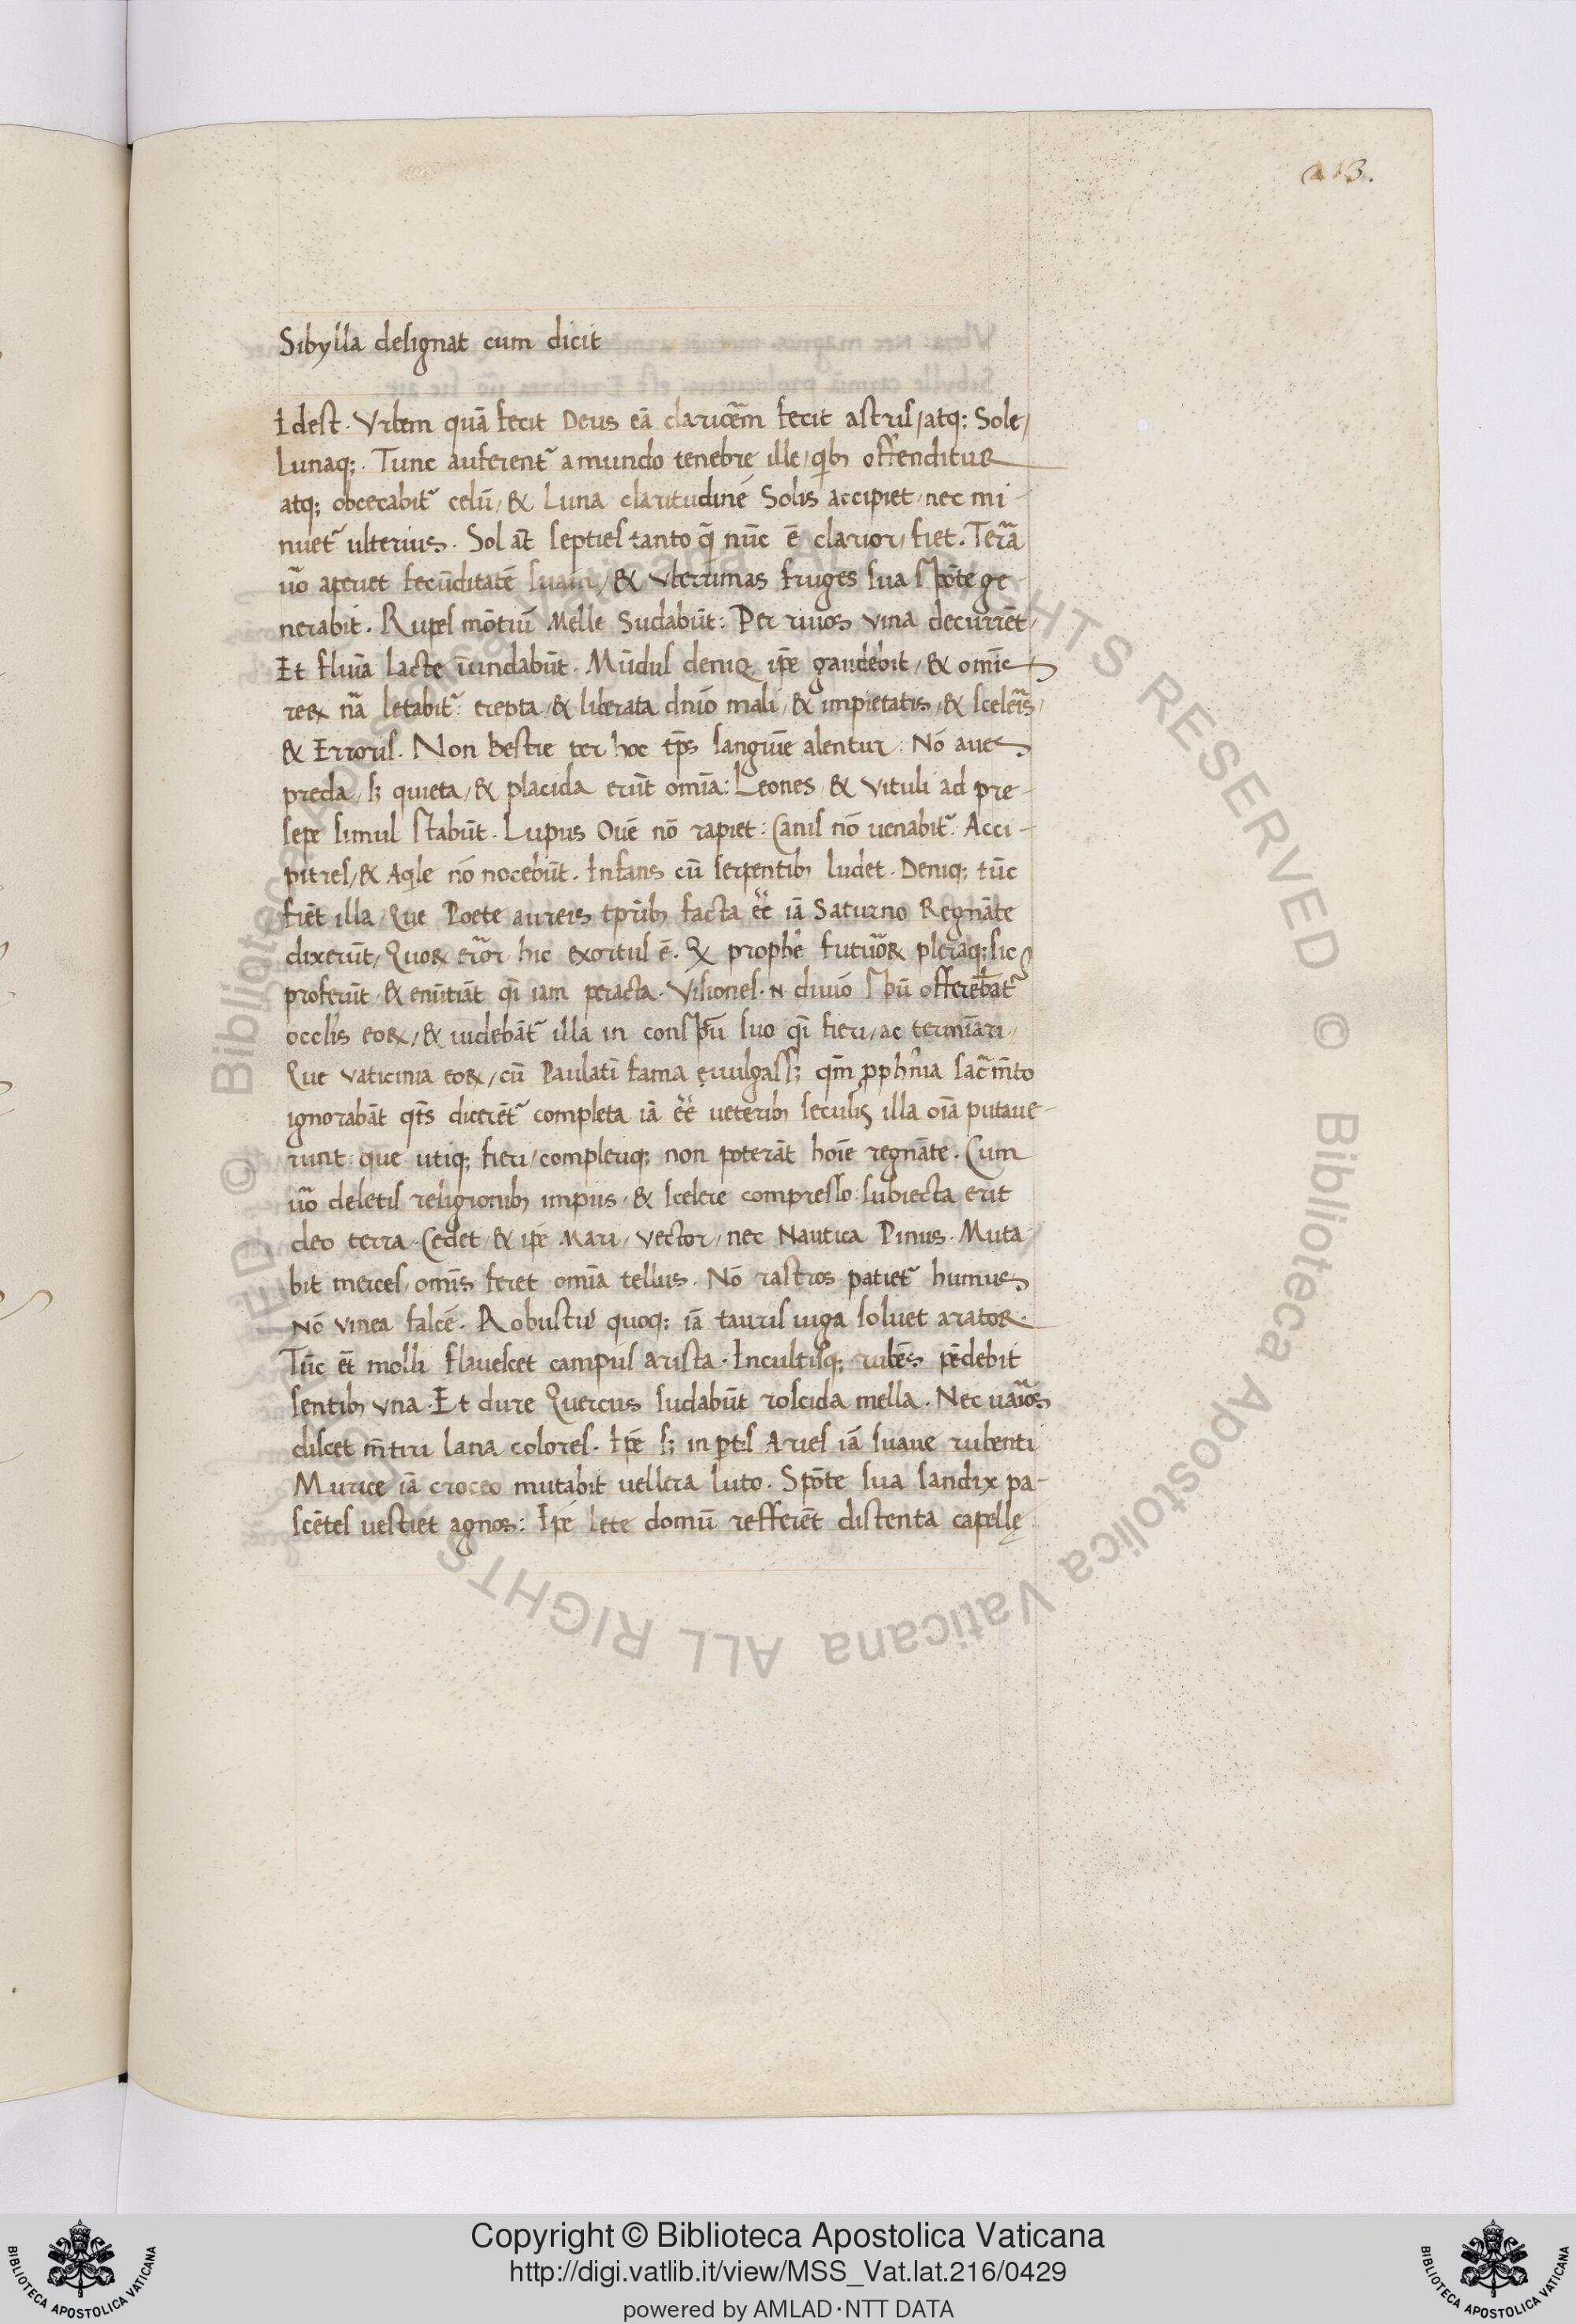 a13.
Sibylla designat cum dicit
Idest. Vrbem quā fecit Deus eā claricēm fecit astris/atq; Sole/
Lunaq;. Tunc auferent᷑ a mundo tenebrę ille/qib᷒ offenditur
atq; obcecabit᷑ celū/& Luna claritudinē Solis accipiet/nec mi-
nuet᷑ ulterius. Sol āt septies tanto q̄ nūc ē clarior/fiet. Terā
ūo aperiet fecūditatē suam/& vberrimas fruges sua spōte ge-
nerabit. Rupes mōtiū Melle Sudabūt: Per riuos vina decurrēt/
Et fluīa lacte īundabūt. Mūdus deniq, ip̄e gaudebit/& omīs
reꝝ nā letabit᷑: erepta/& liberata dnīo mali/& impietatis/& sceleīs/
& Erroris. Non bestie per hoc tp̄s sanguīe alentur: Nō aues
preda/s; quieta/& placida erūt omīa: Leones/& Vituli ad pre-
sepe simul stabūt. Lupus Ouē nō rapiet: Canis nō uenabit᷑. Acci-
pitres/& Aqile nō nocebūt. Infans cū serpentib᷒ ludet. Deniq; tūc
fiēt illa/Que Poete aureis tp̄rib᷒ facta ēē iā Saturno Regnāte
dixerūt/Quoꝝ erōr hic exortus ē. Qꝫ prophē futūoꝝ pleraq; sic
proferūt/& enūtiāt qi iam peracta. Visiones. n. diuīo Spū offerebāt᷑
occlis eoꝝ/& uidebāt᷑ illa in conspū suo qi fieri/ac termīari/
Que vaticinia eoꝝ/cū Paulatī fama ęuulgass; qm̄ pphnīa sacm̄to
ignorabāt qt̄s dicerēt᷑ completa iā ēē ueterib᷒ seculis illa oīa putaue-
runt: que utiq; fieri/complerīq; non poterāt hoīe regnāte. Cum
ūo deletis religionib᷒ impiis/& scelere compresso: subiecta erit
deo terra. Cedet/& ip̄e Mari/Vector/nec Nautica Pinus. Muta
bit merces/omīs feret omīa tellus. Nō rastros patiet᷑ humus
Nō vinea falcē. Robustus quoq; iā tauris iuga soluet arator.
Tūc ēt molli flauescet campus arista. Incultisq; rubēs pēdebit
sentib᷒ vua. Et dure Quercus sudabūt roscida mella. Nec uaīos
discet m̄tiri lana colores. Ip̄e s; in ptis Aries iā suaue rubenti
Murice iā croceo mutabit uellera luto. Spōte sua sandix pa-
scētes uestiet agnos: Ip̄e lete domū refferēt distenta capellę
© Biblioteca Apostolica Vaticana ALL RIGHTS RESERVED
© Biblioteca Apostolica Vaticana ALL RIGHTS RESERVED
BIBLIOTECA APOSTOLICA VATICANA
Copyright © Biblioteca Apostolica Vaticana
http://digi.vatlib.it/view/MSS_Vat.lat.216/0429
powered by AMLAD·NTT DATA
BIBLIOTECA APOSTOLICA VATICANA